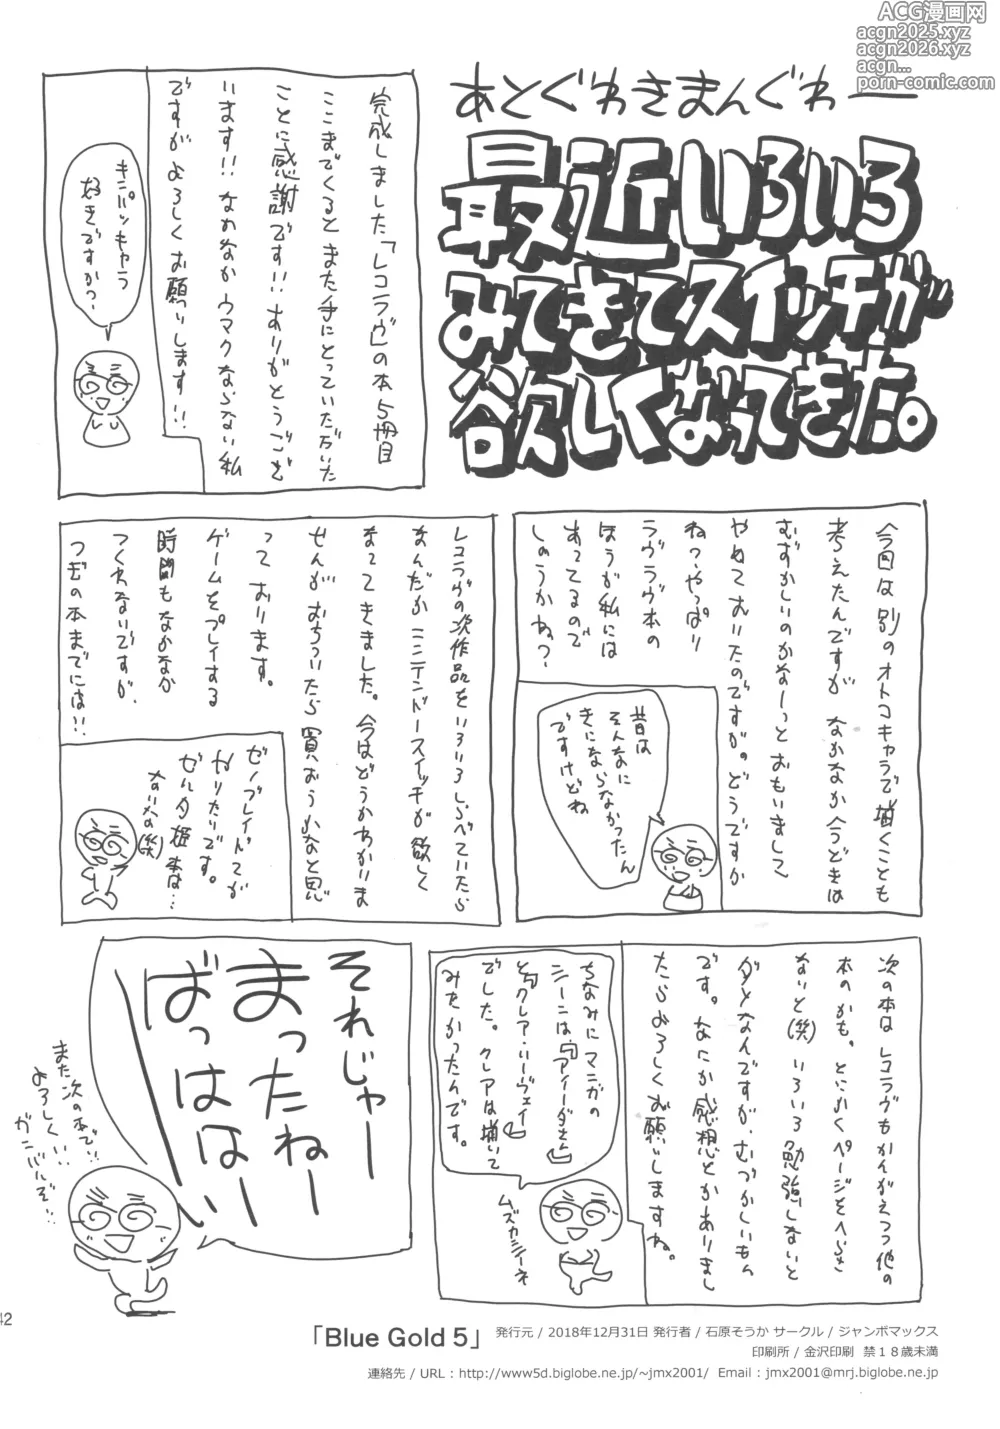 ACG漫画网
acgn2025.xyz
acgn2026.xyz
acgn...
porn-comic.com
あとぐわきまんぐわー
最近いろいろ
みてきてスイッチが
欲しくなってきた。
完成しました「レコラヴ」の本5冊目
ここまでくるとまた手にとっていただいた
ことに感謝です!!ありがとうござ
います!!なかなかウマクならない私
ですがよろしくお願いします!!
キンパツキャラ
好きですか?
今回は別のオトコキャラで描くことも
考えたんですがなかなか今どきは
むずかしいのかなーっとおもいまして
やめておいたのですが。どうですか
ねっ、やっぱり
ラヴラヴ本の
ほうが私には
あってるので
しょうかねっ?
昔は
そんなに
きにならなかったん
ですけどね
レコラヴの次作品をいろいろしらべていたら
なんだかニンテンドースイッチが欲しく
なってきました。今はどうかわかりま
せんがおちついたら買おうかなと思
っております。
ゲームをプレイする
時間もなかなか
つくれないですが、
つぎの本までには!!
ゼノブレイド2が
やりたいです。
ゼルダ姫本は…
ないかな(笑)
次の本はレコラヴもかんがえつつ他の
本のかも。とにかくページをへらさ
ないと(笑)いろいろ勉強しないと
ダメなんですが、むづかしいもん
です。なにか感想とかありまし
たらよろしくお願いしますね。
ちなみにマンガの
シーンは、「アイーダさん」
と「クレア・ハーヴェイ」
でした。クレアは描いて
みたかったんです。
ムズカシーネ
それじゃー
まったねー
ばっははーい
また次の本で!!
よろしくい!!
ガンバルぞ!!
42
「Blue Gold 5」 発行元 / 2018年12月31日 発行者 / 石原そうか サークル / ジャンボマックス
印刷所 / 金沢印刷　禁18歳未満
連絡先 / URL : http://www5d.biglobe.ne.jp/~jmx2001/  Email : jmx2001@mrj.biglobe.ne.jp